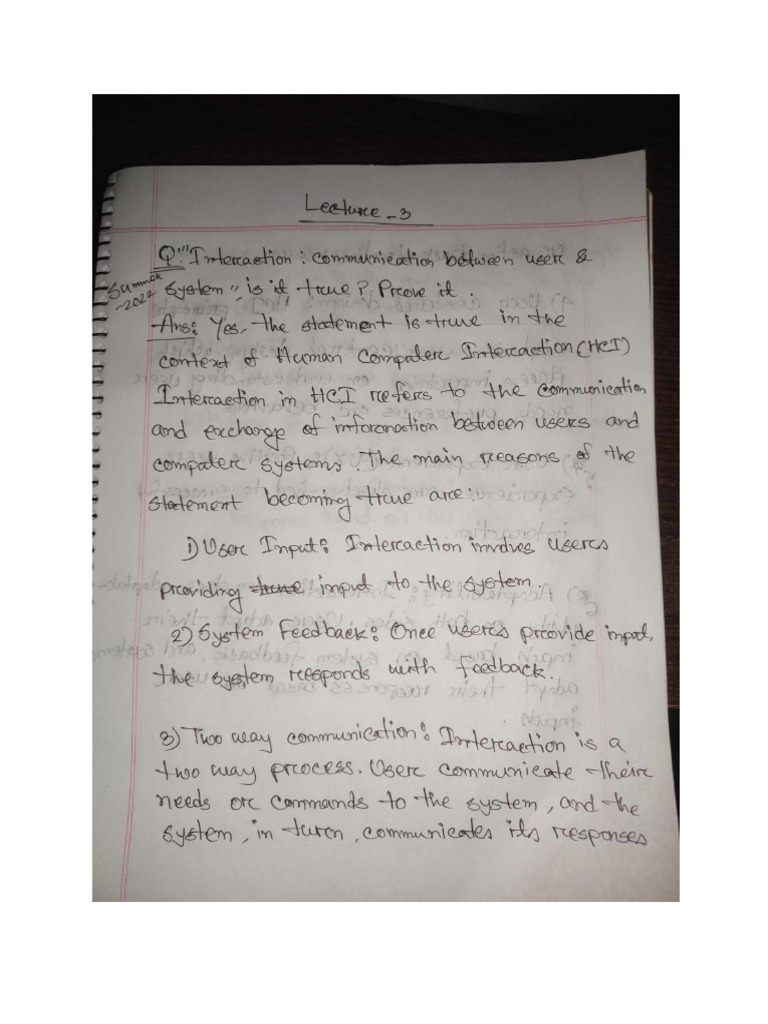 Lecture-3
Q: "Interaction: communication between user &
Summer
-2022
system" is it true? Prove it.
Ans: Yes, the statement is true in the
context of Human Computer Interaction (HCI)
Interaction in HCI refers to the communication
and exchange of information between users and
computer systems. The main reasons of the
statement becoming true are:
1) User Input: Interaction involves users
providing true input to the system.
2) System Feedback: Once users provide input,
the system responds with feedback.
3) Two way communication: Interaction is a
two way process. User communicate their
needs or commands to the system, and the
system, in turn, communicates its responses